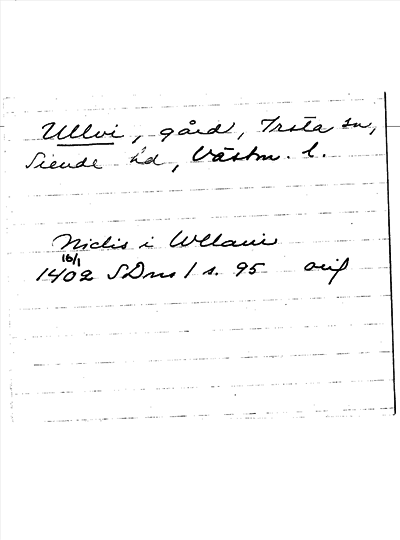 Ullvi, gård, Irsta sn,
Siende hd, Västm. l.
Niclis i Wllawi
16/1
1402 SDns 1 s. 95 orig